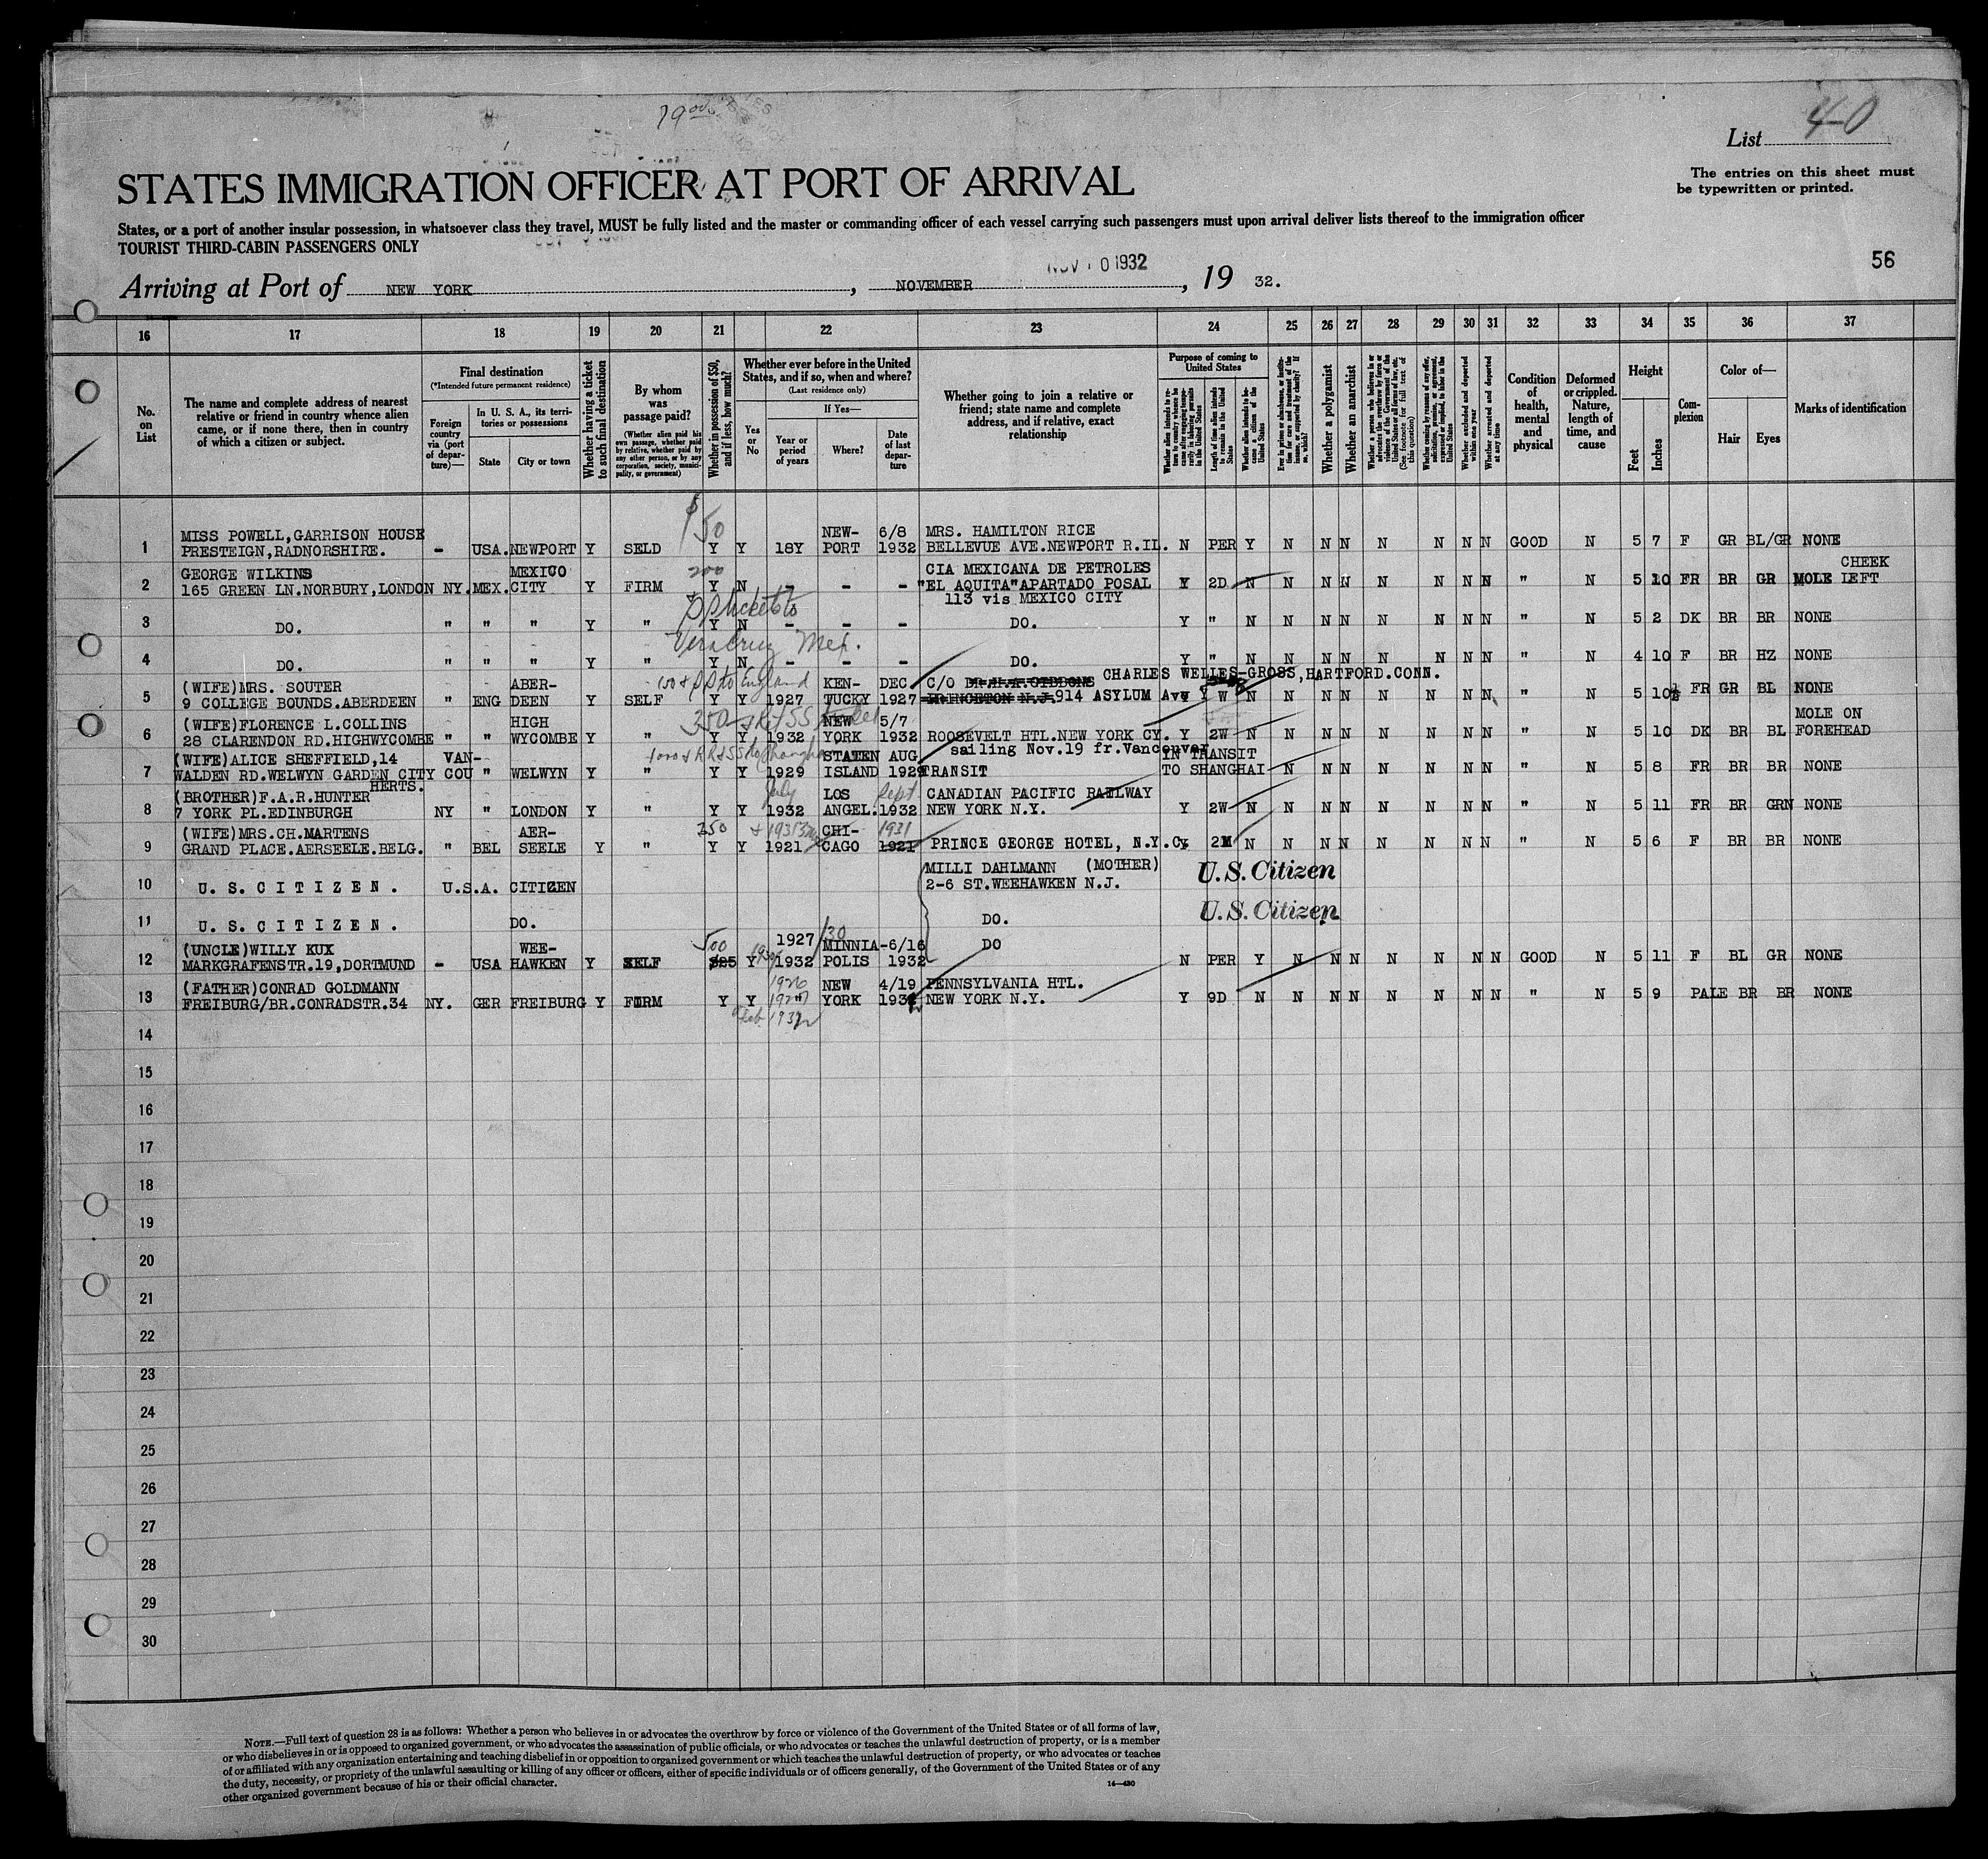 1900
List 40
STATES IMMIGRATION OFFICER AT PORT OF ARRIVAL
The entries on this sheet must
be typewritten or printed.
States, or a port of another insular possession, in whatsoever class they travel, MUST be fully listed and the master or commanding officer of each vessel carrying such passengers must upon arrival deliver lists thereof to the immigration officer
TOURIST THIRD-CABIN PASSENGERS ONLY
56
Arriving at Port of NEW YORK, NOVEMBER NOV 10 1932, 19 32.
16 17 18 19 20 21 22 23 24 25 26 27 28 29 30 31 32 33 34 35 36 37
No. on List
The name and complete address of nearest relative or friend in country whence alien came, or if none there, then in country of which a citizen or subject.
Final destination
(*Intended future permanent residence)
Foreign country via (port of departure)—
In U. S. A., its territories or possessions
State
City or town
Whether having a ticket to such final destination
By whom was passage paid?
(Whether alien paid his own passage, whether paid by relative, whether paid by any other person, or by any corporation, society, municipality, or government)
Whether in possession of $50, and if less, how much?
Whether ever before in the United States, and if so, when and where?
(Last residence only)
Yes or No
If Yes—
Year or period of years
Where?
Date of last departure
Whether going to join a relative or friend; state name and complete address, and if relative, exact relationship
Purpose of coming to United States
Whether alien intends to return to country whence he came after engaging temporarily in laboring pursuits in the United States
Length of time alien intends to remain in the United States
Whether alien intends to become a citizen of the United States
Ever in prison or almshouse, or institution for care and treatment of the insane, or supported by charity? If so, which?
Whether a polygamist
Whether an anarchist
Whether a person who believes in or advocates the overthrow by force or violence of the Government of the United States or all forms of law, etc. (See footnote for full text of this question)
Whether coming by reasons of any offer, solicitation, promise, or agreement, expressed or implied, to labor in the United States
Whether excluded and deported within one year
Whether arrested and deported at any time
Condition of health, mental and physical
Deformed or crippled. Nature, length of time, and cause
Height
Feet
Inches
Complexion
Color of—
Hair
Eyes
Marks of identification
$50
1 MISS POWELL,GARRISON HOUSE NEW- 6/8 MRS. HAMILTON RICE
PRESTEIGN,RADNORSHIRE. - USA. NEWPORT Y SELD Y Y 18Y PORT 1932 BELLEVUE AVE.NEWPORT R.IL. N PER Y N N N N N N N GOOD N 5 7 F GR BL/GR NONE
2 GEORGE WILKINS MEXICO 200 CIA MEXICANA DE PETROLES CHEEK
165 GREEN LN.NORBURY,LONDON NY. MEX. CITY Y FIRM Y N - - - "EL AQUITA"APARTADO POSAL Y 2D N N N N N N N N " N 5 10 FR BR GR MOLE LEFT
113 vis MEXICO CITY
& SS tickets to
3 DO. " " " Y " Y N - - - DO. Y " N N N N N N N N " N 5 2 DK BR BR NONE
Vera Cruz Mex.
4 DO. " " " Y " Y N - - - DO. Y " N N N N N N N N " N 4 10 F BR HZ NONE
5 (WIFE)MRS. SOUTER ABER- 150 & SS to England KEN- DEC C/O CHARLES WELLES-GROSS,HARTFORD.CONN.
9 COLLEGE BOUNDS.ABERDEEN " ENG DEEN Y SELF Y Y 1927 TUCKY 1927 PRINCETON N.J. 914 ASYLUM Ave Y W N N N N N N N N " N 5 10½ FR GR BL NONE
6 (WIFE)FLORENCE L.COLLINS HIGH 350 NEW 5/7 MOLE ON
28 CLARENDON RD.HIGHWYCOMBE " " WYCOMBE Y " Y Y 1932 YORK 1932 ROOSEVELT HTL.NEW YORK CY. Y 2W N N N N N N N N " N 5 10 DK BR BL FOREHEAD
7 (WIFE)ALICE SHEFFIELD,14 VAN- 1000 & RR & SS to Shanghai STATEN AUG sailing Nov.19 fr.Vancouver IN TRANSIT
WALDEN RD.WELWYN GARDEN CITY COU " WELWYN Y " Y Y 1929 ISLAND 1929 TRANSIT TO SHANGHAI N N N N N N N " N 5 8 FR BR BR NONE
HERTS.
8 (BROTHER)F.A.R.HUNTER July LOS Sept CANADIAN PACIFIC RAILWAY
7 YORK PL.EDINBURGH NY " LONDON Y " Y Y 1932 ANGEL. 1932 NEW YORK N.Y. Y 2W N N N N N N N N " N 5 11 FR BR GRN NONE
9 (WIFE)MRS.CH.MARTENS AER- 250 & 1931 CHI- 1931
GRAND PLACE.AERSEELE.BELG. " BEL SEELE Y " Y Y 1921 CAGO 1921 PRINCE GEORGE HOTEL, N.Y.Cy. Y 2M N N N N N N N N " N 5 6 F BR BR NONE
10 U. S. C I T I Z E N . U.S.A. CITIZEN MILLI DAHLMANN (MOTHER) U.S. Citizen
2-6 ST.WEEHAWKEN N.J.
11 U. S. C I T I Z E N . DO. DO. U.S. Citizen
12 (UNCLE)WILLY KUX WEE- 500 1927 /30 MINNIA- 6/16 DO
MARKGRAFENSTR.19,DORTMUND - USA HAWKEN Y SELF $25 Y 1932 POLIS 1932 N PER Y N N N N N N N GOOD N 5 11 F BL GR NONE
13 (FATHER)CONRAD GOLDMANN 1926 NEW 4/19 PENNSYLVANIA HTL.
FREIBURG/BR.CONRADSTR.34 NY. GER FREIBURG Y FIRM Y Y 1927 YORK 1932 NEW YORK N.Y. Y 9D N N N N N N N N " N 5 9 PALE BR BR NONE
Feb 1932
14
15
16
17
18
19
20
21
22
23
24
25
26
27
28
29
30
NOTE.—Full text of question 28 is as follows: Whether a person who believes in or advocates the overthrow by force or violence of the Government of the United States or of all forms of law,
or who disbelieves in or is opposed to organized government, or who advocates the assassination of public officials, or who advocates or teaches the unlawful destruction of property, or is a member
of or affiliated with any organization entertaining and teaching disbelief in or opposition to organized government or which teaches the unlawful destruction of property, or who advocates or teaches
the duty, necessity, or propriety of the unlawful assaulting or killing of any officer or officers, either of specific individuals or of officers generally, of the Government of the United States or of any
other organized government because of his or their official character.
14—430